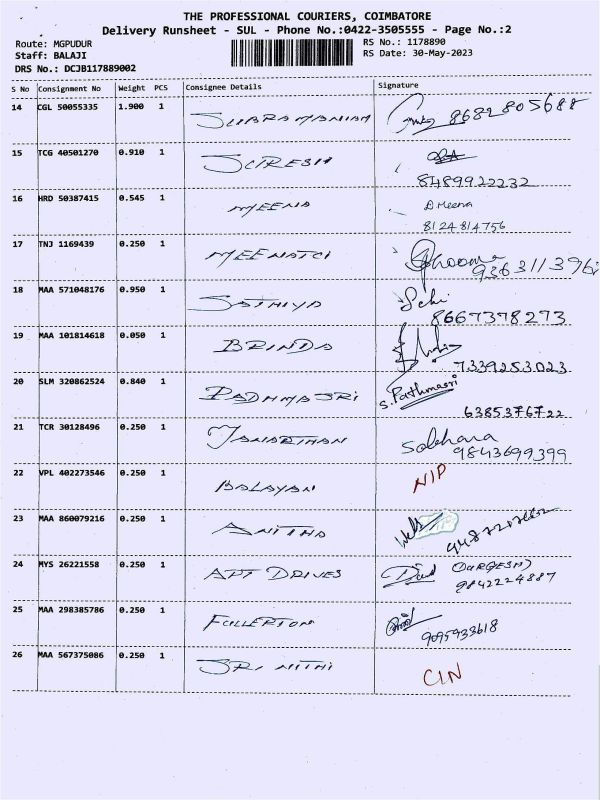 THE PROFESSIONAL COURIERS, COIMBATORE
Delivery Runsheet - SUL - Phone No.:0422-3505555 - Page No.:2
Route: MGPUDUR
RS No.: 1178890
Staff: BALAJI
RS Date: 30-May-2023
DRS No.: DCJB117889002
S No Consignment No Weight PCS Consignee Details Signature
14 CGL 50055335 1.900 1 SUBRAMANIAM 8682805688
15 TCG 40501270 0.910 1 SURESH
8489922232
16 HRD 50387415 0.545 1 MEENA D Meena
8124814756
17 TNJ 1169439 0.250 1 MEENATCI
18 MAA 571048176 0.950 1 SATHIYA
8667378273
19 MAA 101814618 0.050 1 BRINDA
7339253023
20 SLM 320862524 0.840 1 PADHMASRI S. Pathmasri
6385376722
21 TCR 30128496 0.250 1 JANARTHAN Sobhana
9843699399
22 VPL 402273546 0.250 1 BALAYAN NIP
23 MAA 860079216 0.250 1 ANITHA
24 MYS 26221558 0.250 1 APT DRIVES (DURGESH)
9842224887
25 MAA 298385786 0.250 1 FULLERTON
9095933618
26 MAA 567375086 0.250 1 SRI NITHI CIN